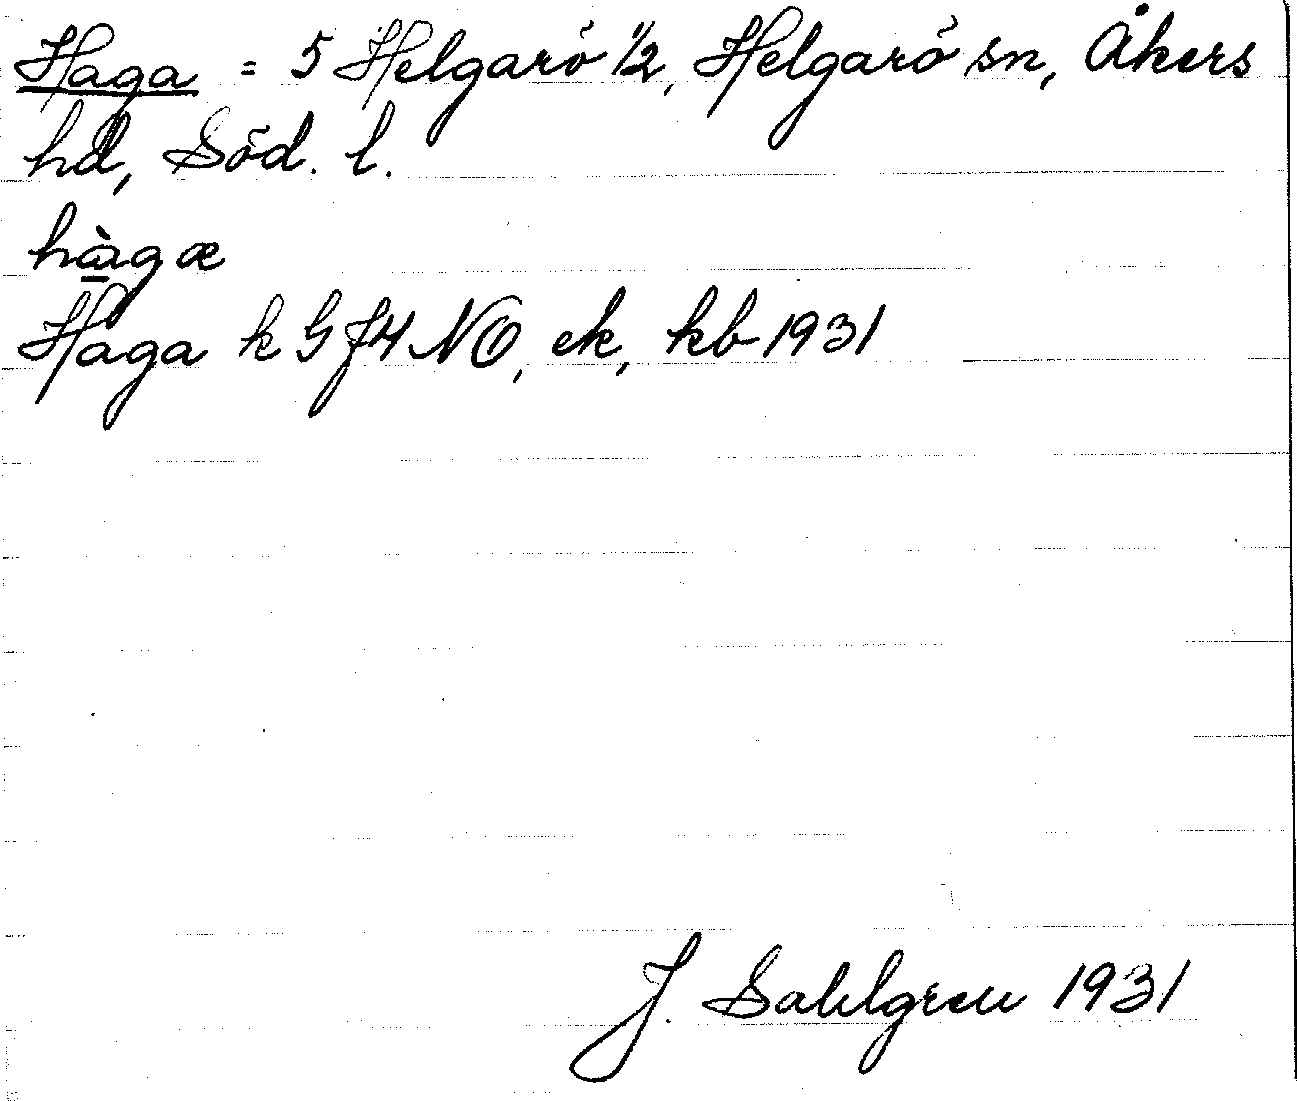 Haga = 5 Helgarö 1/2, Helgarö sn, Åkers
hd, Söd. l.
hàgæ
Haga k G J4 NO, ek, kb 1931
J. Sahlgren 1931